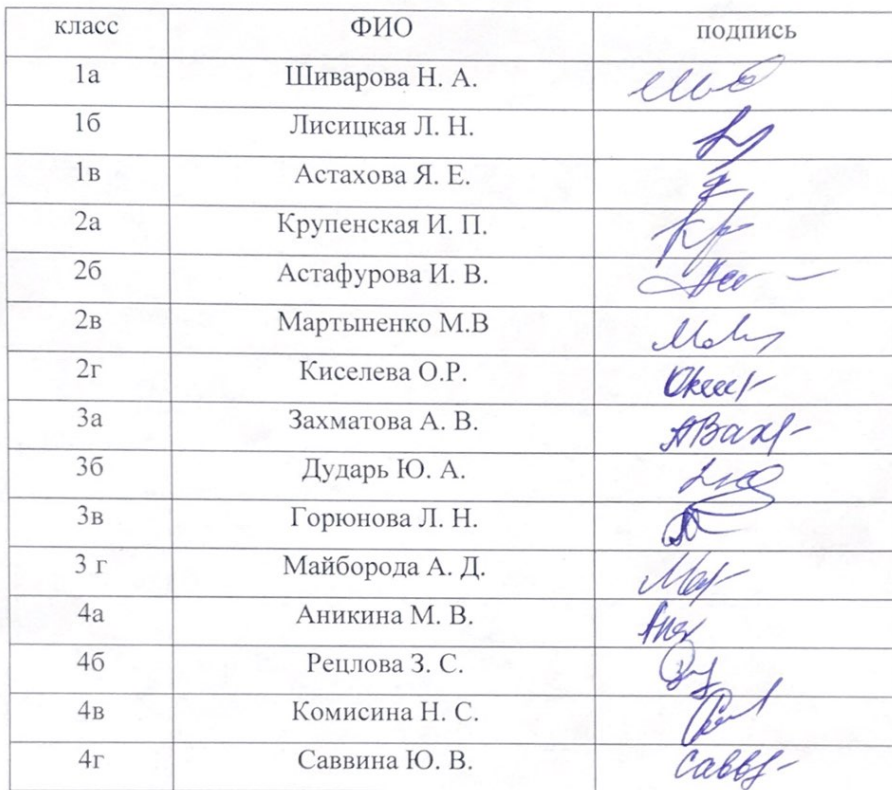 класс ФИО подпись
1а Шиварова Н. А.
1б Лисицкая Л. Н.
1в Астахова Я. Е.
2а Крупенская И. П.
2б Астафурова И. В.
2в Мартыненко М.В
2г Киселева О.Р.
3а Захматова А. В.
3б Дударь Ю. А.
3в Горюнова Л. Н.
3 г Майборода А. Д.
4а Аникина М. В.
4б Рецлова З. С.
4в Комисина Н. С.
4г Саввина Ю. В.